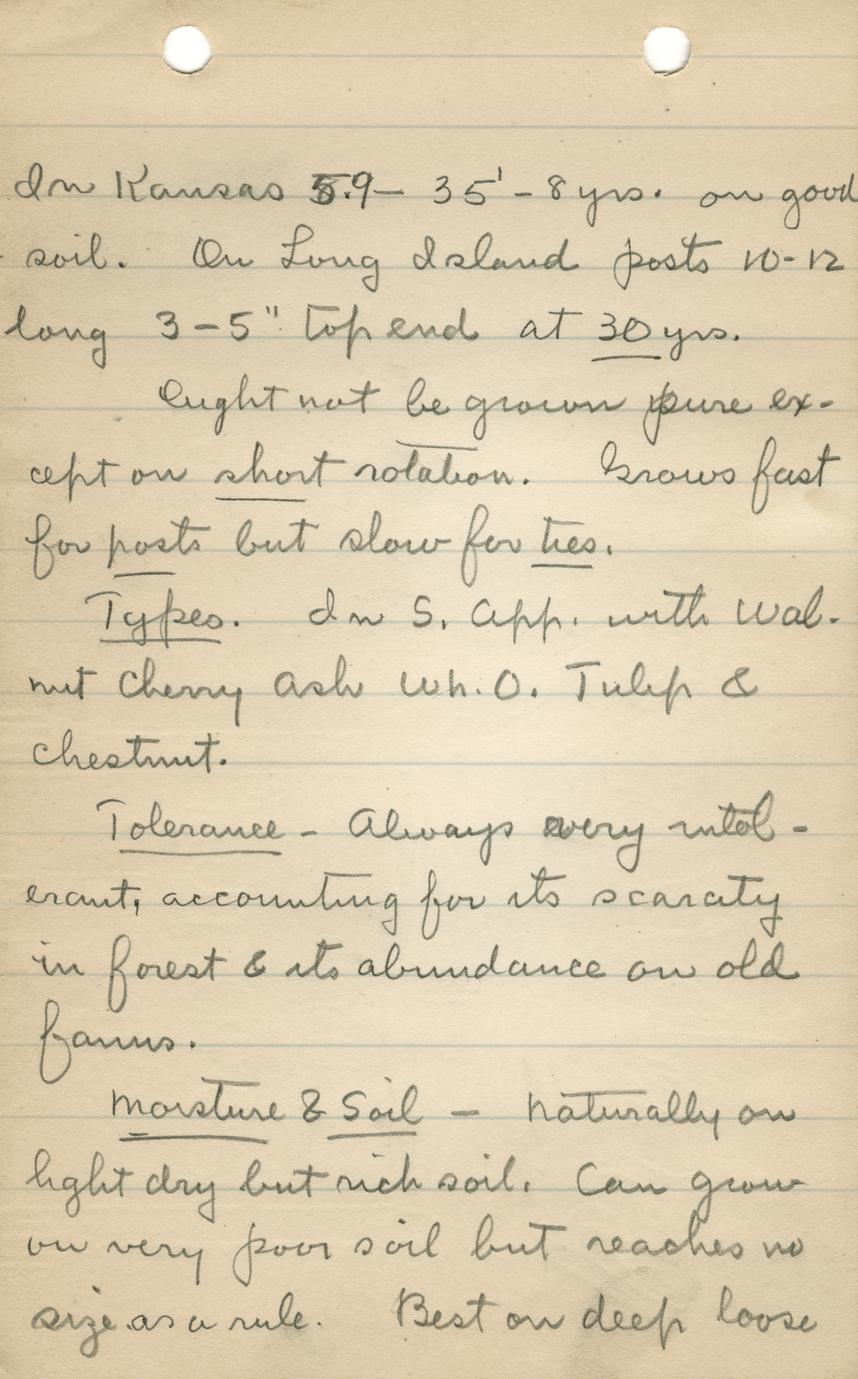 In Kansas 5.9 – 35' – 8 yrs. on good
soil. On Long Island posts 10-12
long 3 – 5" top end at 30 yrs.
Ought not be grown pure ex-
cept on short rotation. Grows fast
for posts but slow for ties.
Types. In S. App. with Wal-
nut Cherry Ash Wh. O. Tulip &
Chestnut.
Tolerance – Always very intol-
erant, accounting for its scarcity
in forest & its abundance on old
farms.
Moisture & Soil – Naturally on
light dry but rich soil. Can grow
on very poor soil but reaches no
size as a rule. Best on deep loose